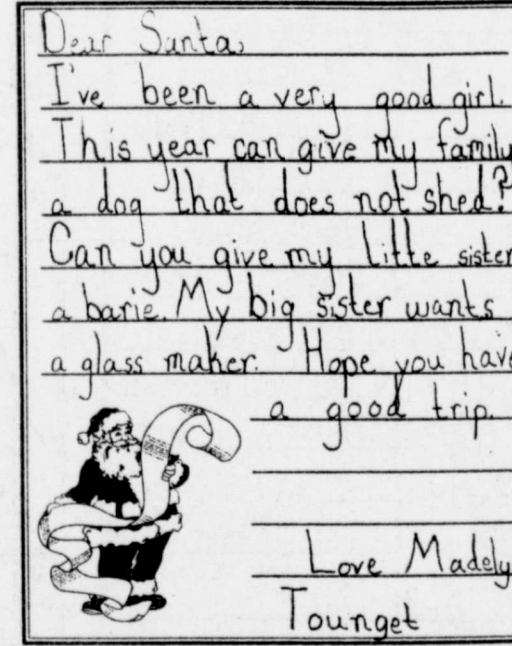 Dear Santa,
I've been a very good girl.
This year can give my family
a dog that does not shed?
Can you give my litte sister
a barie. My big sister wants
a glass maker. Hope you have
a good trip.
Love Madely
Tounget